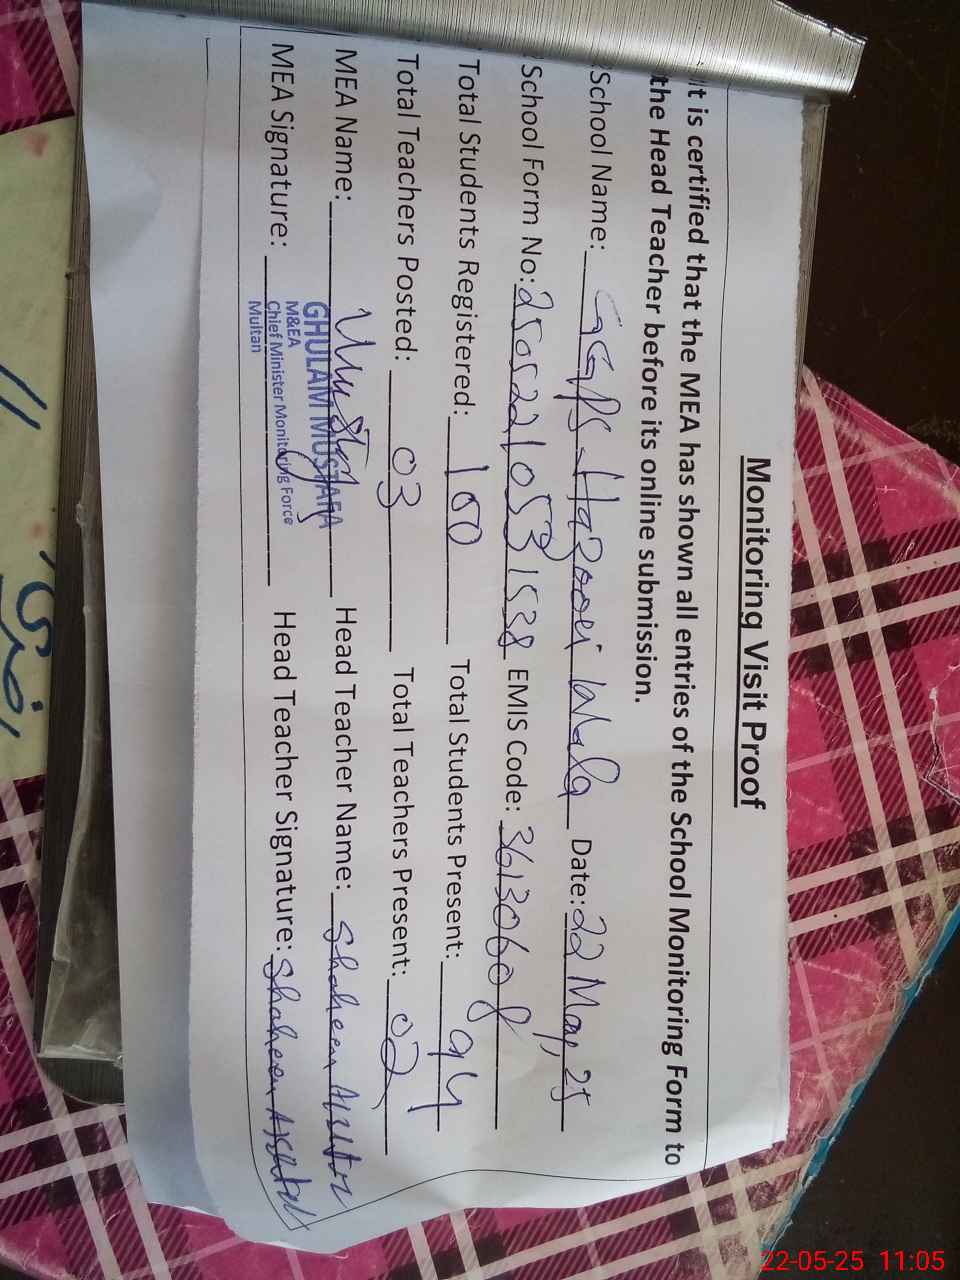 Monitoring Visit Proof
It is certified that the MEA has shown all entries of the School Monitoring Form to
the Head Teacher before its online submission.
School Name: GGPS Hazoori Wala Date: 22 May, 25
School Form No: EMIS Code:
Total Students Registered: 100 Total Students Present: 94
Total Teachers Posted: 03 Total Teachers Present: 02
MEA Name: Head Teacher Name: Shaheen Akhtar
GHULAM MUSTAFA
M&EA
Chief Minister Monitoring Force
Multan
MEA Signature: Head Teacher Signature: Shaheen Akhtar
22-05-25 11:05